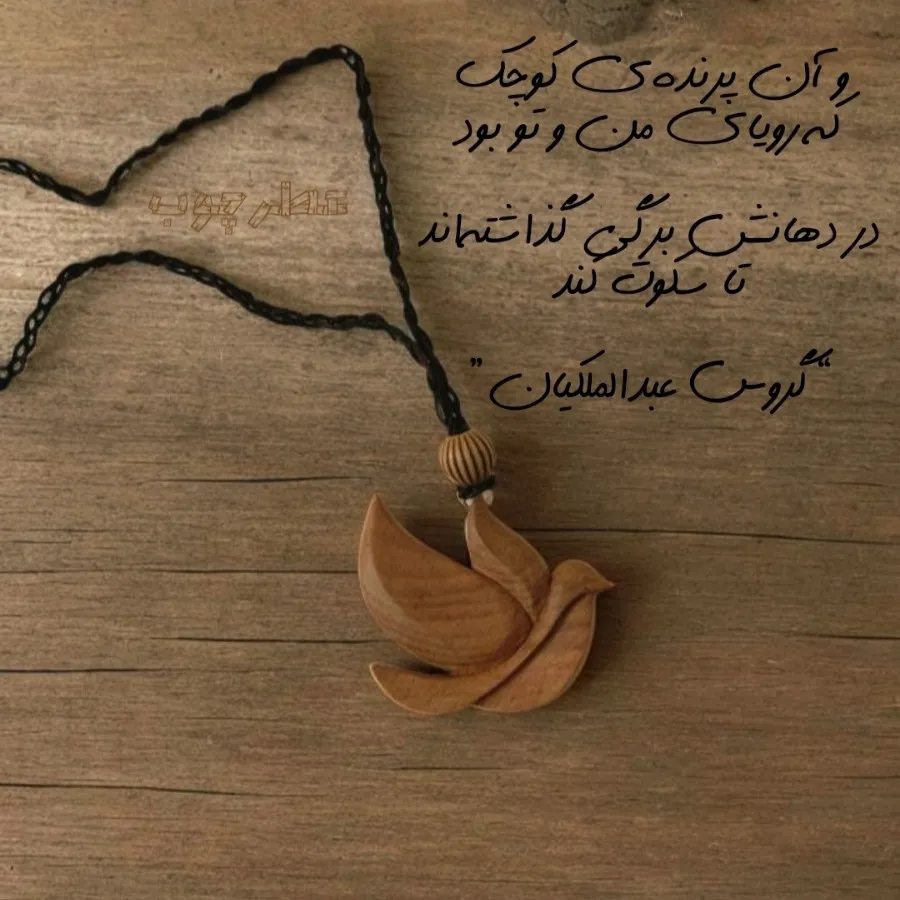 و آن پرنده‌ی کوچک
که رویای من و تو بود
در دهانش برگی گذاشته‌اند
تا سکوت کند
"گروس عبدالملکیان"
عطر چوب